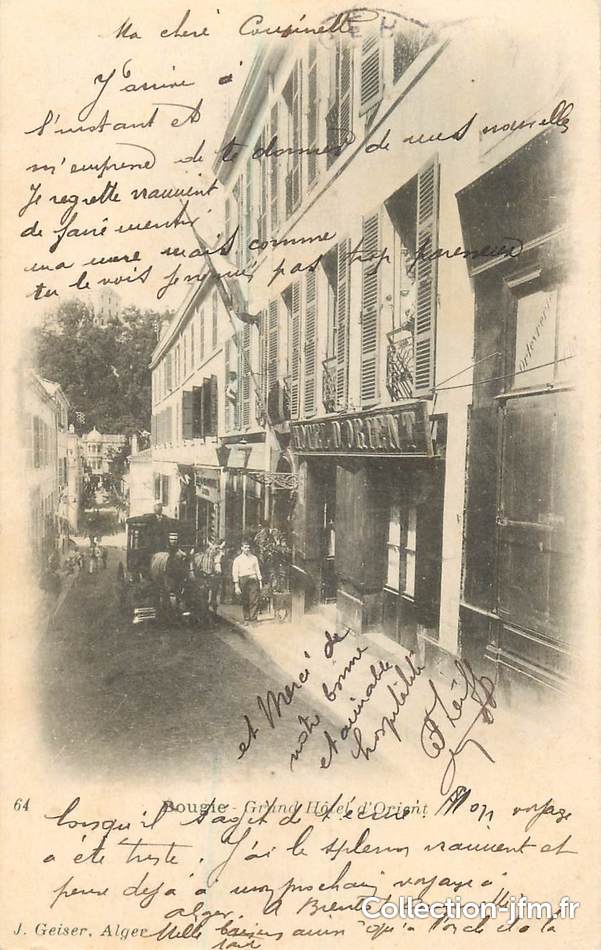 Ma chère Coupinette
J'arrive à
l'instant et
m'emprense de te donner de mes nouvelles
Je regrette vraiment
de t'avoir
ma mère mais comme
tu le vois je ne suis pas trop paresseuse
HOTEL D'ORIENT
et Merci de
votre bonne
et aimable
hospitalité
64
Bougie - Grand Hôtel d'Orient
lorsqu'il s'agit de t'écrire. Mon voyage
a été triste. J'ai le spleen vraiment et
pense déjà à mon prochain voyage à
alger. A Bientôt
Mille baisers ainsi qu'à
J. Geiser, Alger
Collection-jfm.fr